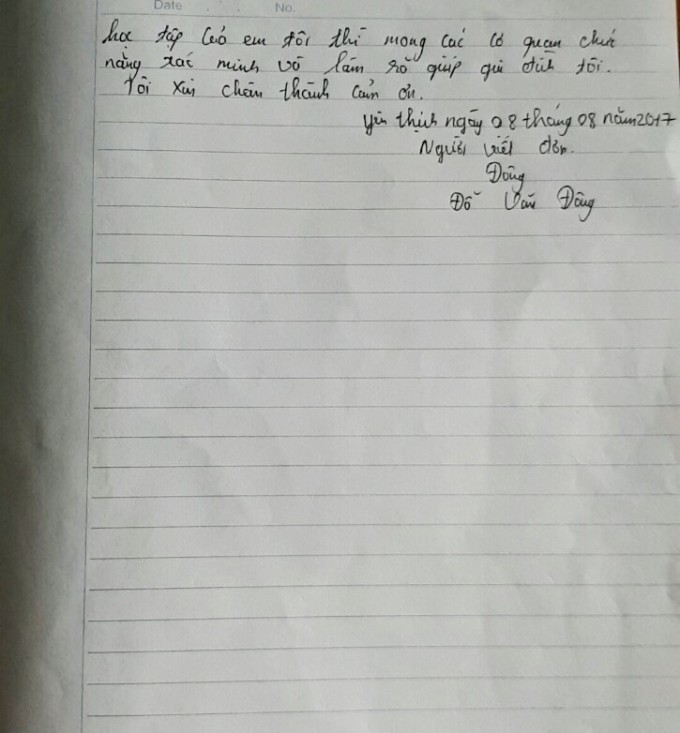 Date . . No.
học tập của em tôi thì mong các cơ quan chức
năng xác minh và làm rõ giúp gia đình tôi.
Tôi xin chân thành cảm ơn.
Yên thịnh ngày 08 tháng 08 năm 2017
Người viết đơn.
Đông
Đỗ Văn Đông